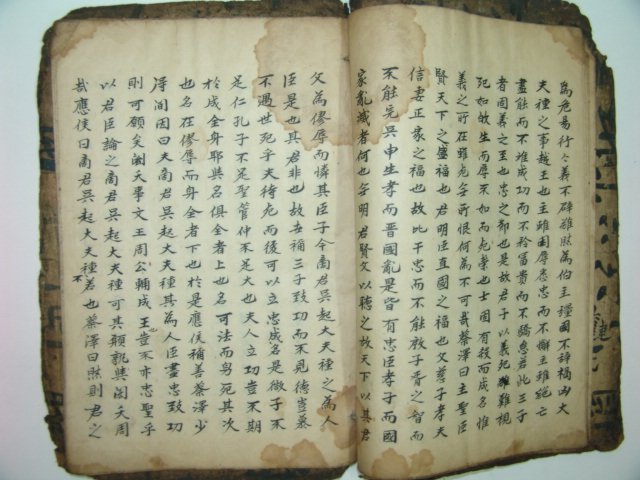 爲危易行行義不辟難然爲伯主强國不辞禍凶大
夫種之事越王也主雖困辱悉忠而不懈主雖絶亡
盡能而不離成功而不矜富貴而不驕怠若此三子
者固義之至也忠之節也是故君子以義死難視
死如故生而辱不如而死榮也士固有殺而成名惟
義之所在雖死無所恨何為不可哉蔡澤曰主聖臣
賢天下之盛福也君明臣直國之福也父慈子孝夫
信妻正家之福也故比干忠而不能存殷子胥之智而
不能完吳申生孝而晉國亂是皆有忠臣孝子而國
家亂滅者何也無明君賢父以聽之故天下以其君
父為僇辱而憐其臣子今商君吳起大夫種之為人
臣是也其君非也故世稱三子致功而不見德豈慕
不遇世死乎夫待死而後可以立忠成名是微子不
足仁孔子不足聖管仲不足大也夫人立功豈不期
於成全身耶與名俱全者上也名可法而身死其次
也名在僇辱而身全者下也於是應侯稱善蔡澤少
得間因曰夫商君吳起大夫種其為人臣盡忠致功
則可願矣閎夭事文王周公輔成王豈不亦忠聖乎
以君臣論之商君吳起大夫種可其願孰與閎夭周
哉應侯曰商君吳起大夫種不若也蔡澤曰然則君之